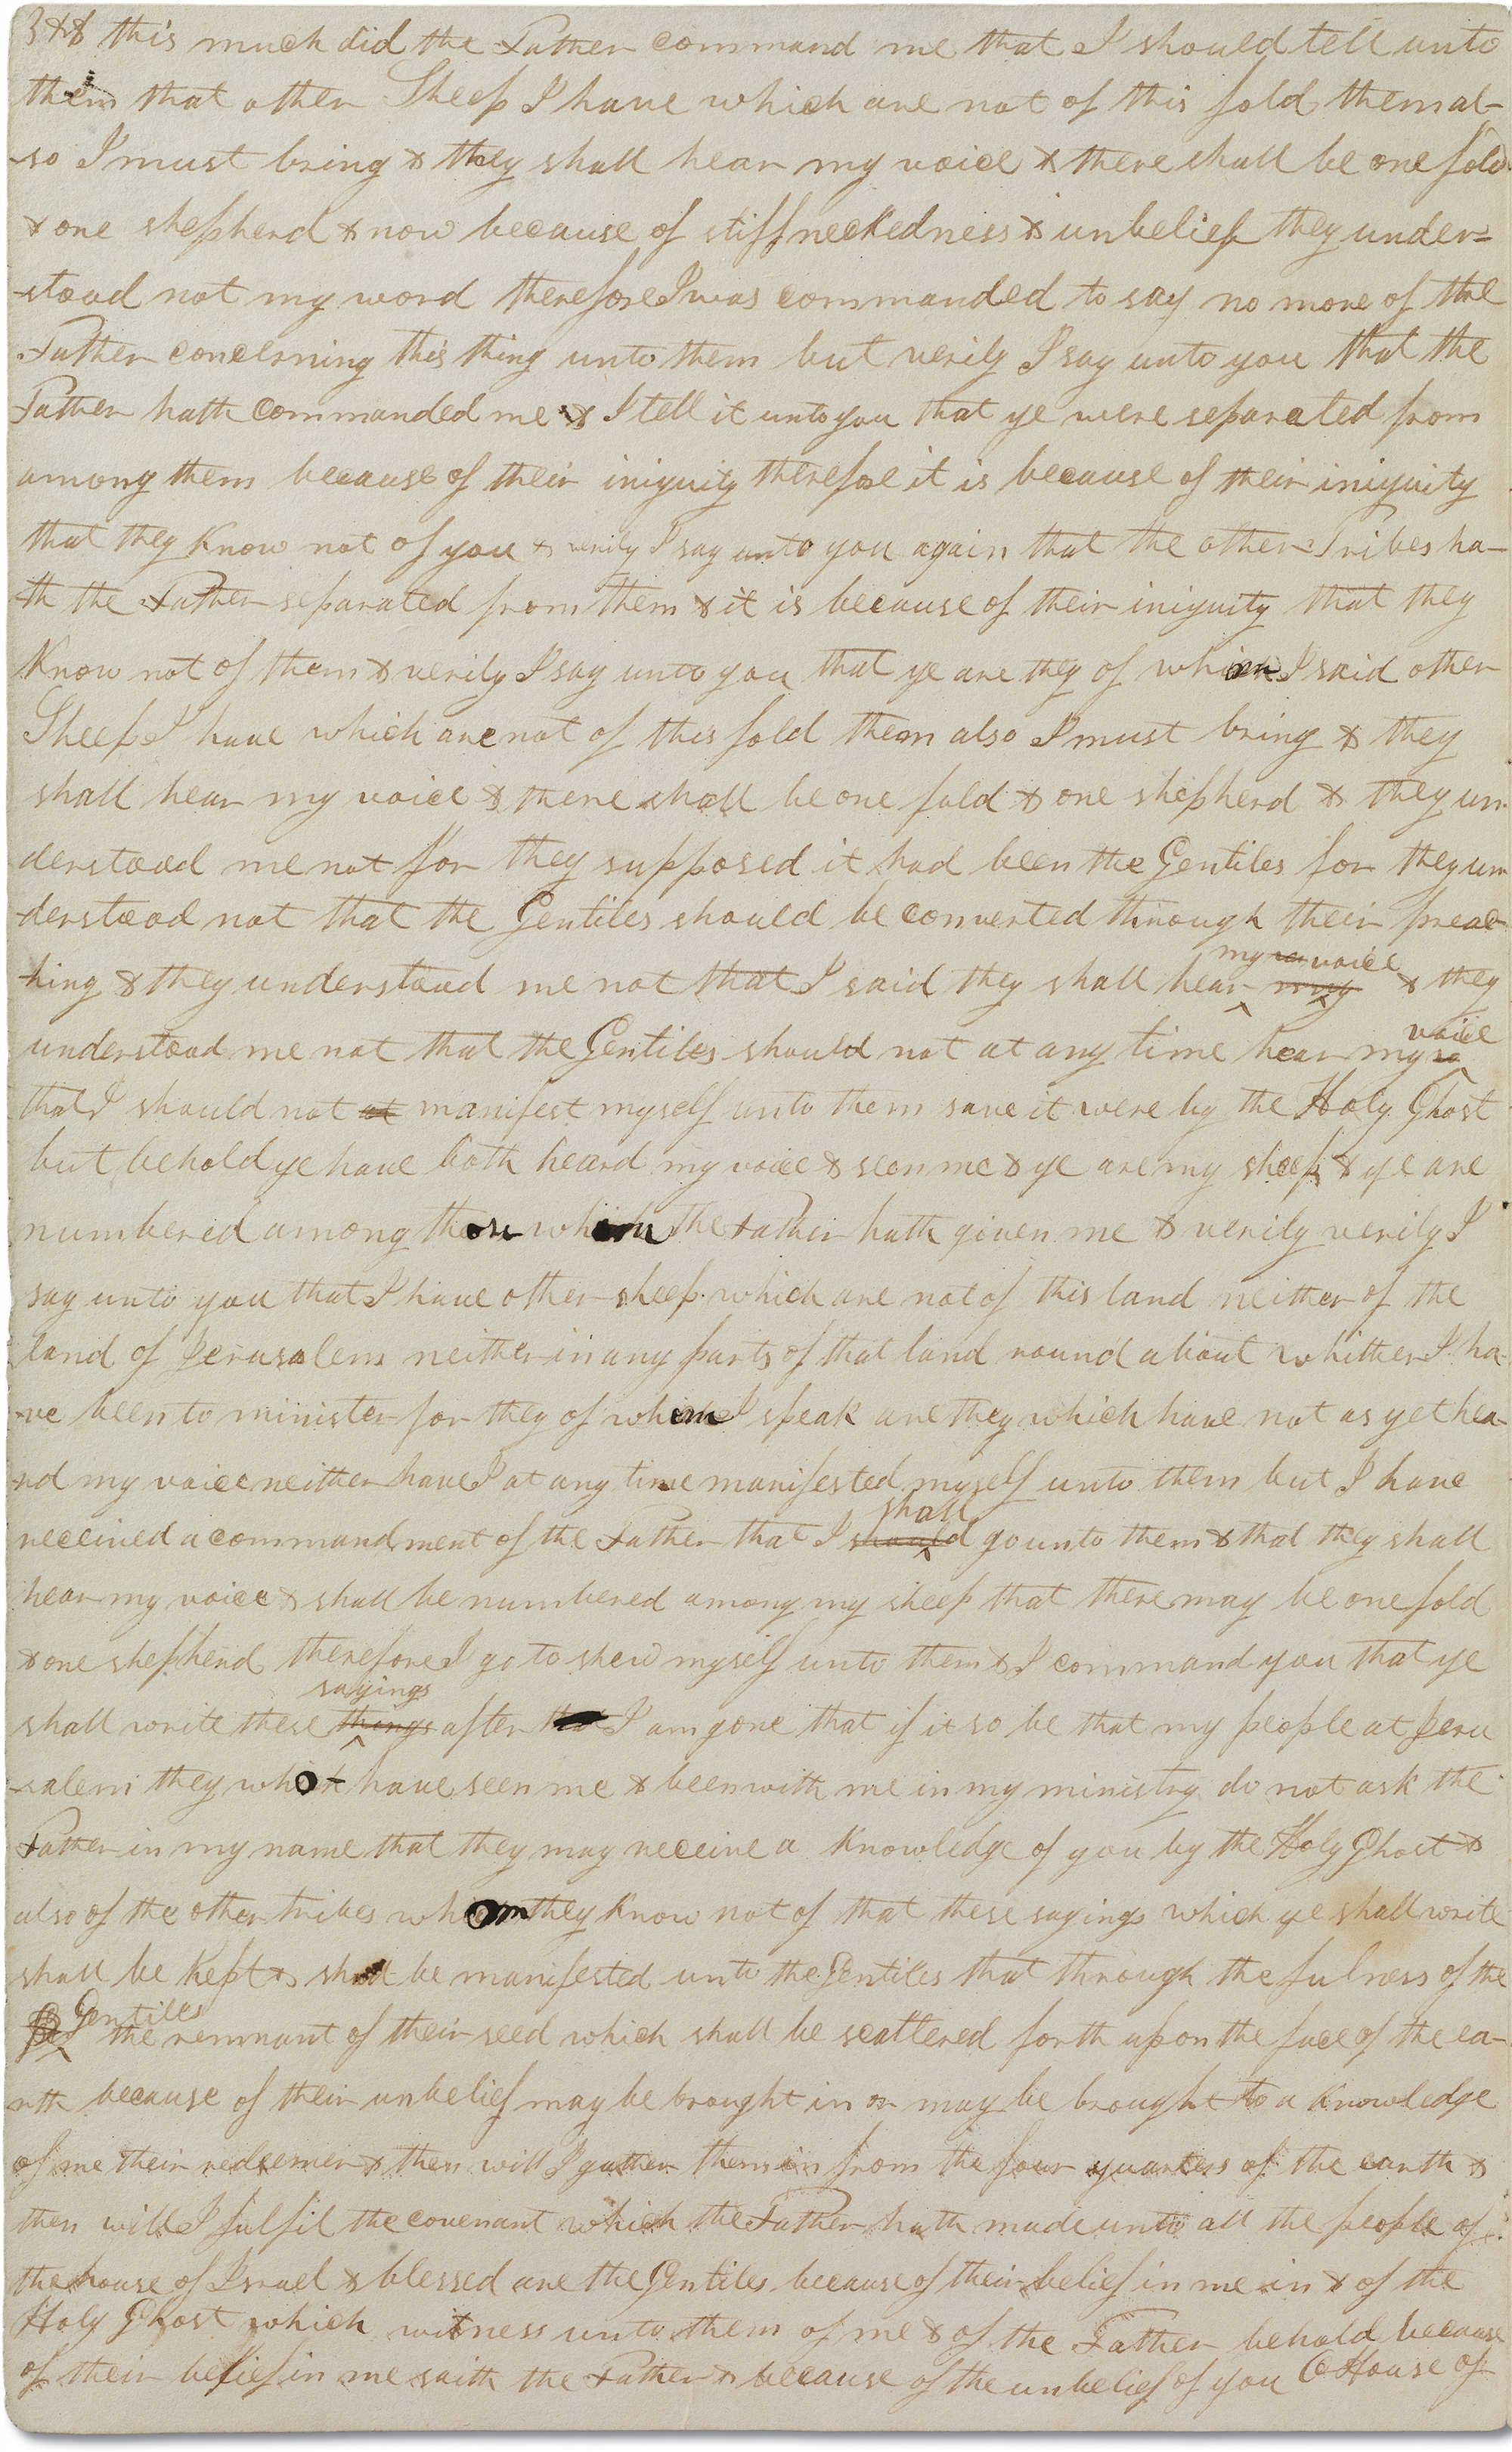 3&& this much did the Father command me that I should tell unto
them that other Sheep I have which are not of this fold them al-
-so I must bring & they shall hear my voice & there shall be one fold
& one shepherd & now because of stiffneckedness & unbelief they under=
-stood not my word therefore I was commanded to say no more of the
Father concerning this thing unto them but verily I say unto you that the
Father hath commanded me & I tell it unto you that ye were separated from
among them because of their iniquity therefore it is because of their iniquity
that they know not of you & verily I say unto you again that the other Tribes ha-
-th the Father separated from them & it is because of their iniquity that they
know not of them & verily I say unto you that ye are they of whom I said other
Sheep I have which are not of this fold them also I must bring & they
shall hear my voice & there shall be one fold & one shepherd & they un-
derstood me not for they supposed it had been the Gentiles for they un
-derstood not that the Gentiles should be converted through their preac-
-hing & they understood me not that I said they shall hear my voice & they
understood me not that the Gentiles should not at any time hear my voice
that I should not at manifest myself unto them save it were by the Holy Ghost
but behold ye have both heard my voice & seen me & ye are my sheep & ye are
numbered among those whom the Father hath given me & verily verily I
say unto you that I have other sheep which are not of this land neither of the
land of Jerusalem neither in any parts of that land round about whither I ha-
-ve been to minister for they of whom I speak are they which have not as yet hea-
-rd my voice neither have I at any time manifested myself unto them but I have
received a commandment of the Father that I should shall go unto them & that they shall
hear my voice & shall be numbered among my sheep that there may be one fold
& one shepherd therefore I go to shew myself unto them & I command you that ye
shall write these things sayings after that I am gone that if it so be that my people at Jeru
-salem they who have seen me & been with me in my ministry do not ask the
Father in my name that they may receive a knowledge of you by the Holy Ghost &
also of the other tribes whom they know not of that these sayings which ye shall write
shall be kept & shall be manifested unto the Gentiles that through the fulness of the
Gentiles the remnant of their seed which shall be scattered forth upon the face of the ea-
-rth because of their unbelief may be brought in or may be brought to a knowledge
of me their redeemer & then will I gather them in from the four quarters of the earth &
then will I fulfil the covenant which the Father hath made unto all the people of
the house of Israel & blessed are the Gentiles because of their belief in me in & of the
Holy Ghost which witness unto them of me & of the Father behold because
of their belief in me saith the Father & because of the unbelief of you O House of